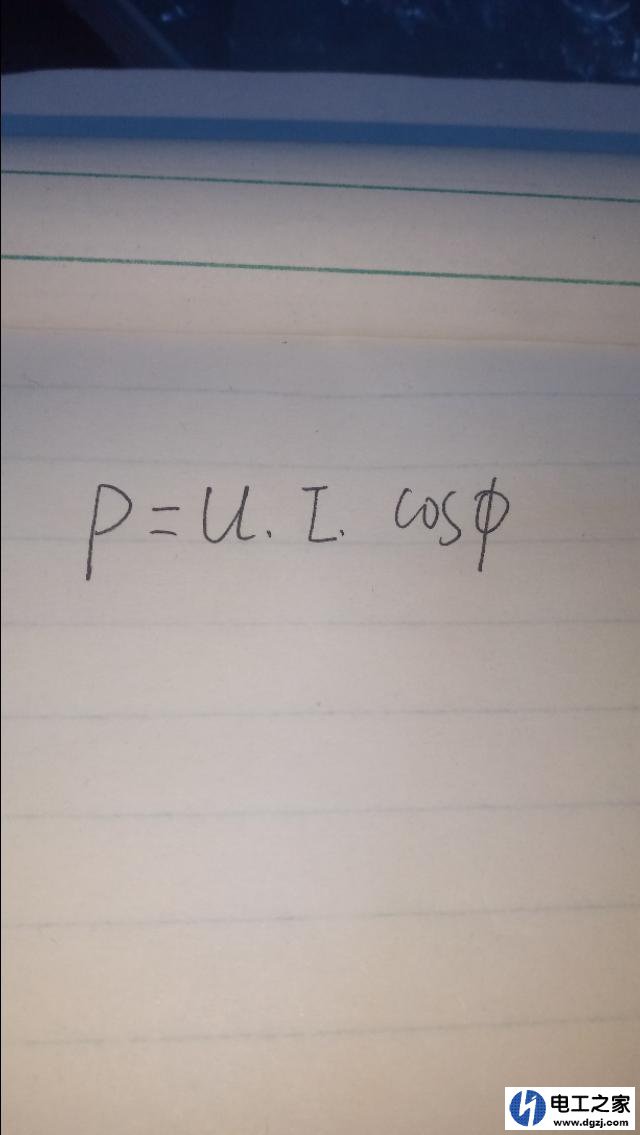 P=U.I.cosφ
电工之家
www.dgzj.com